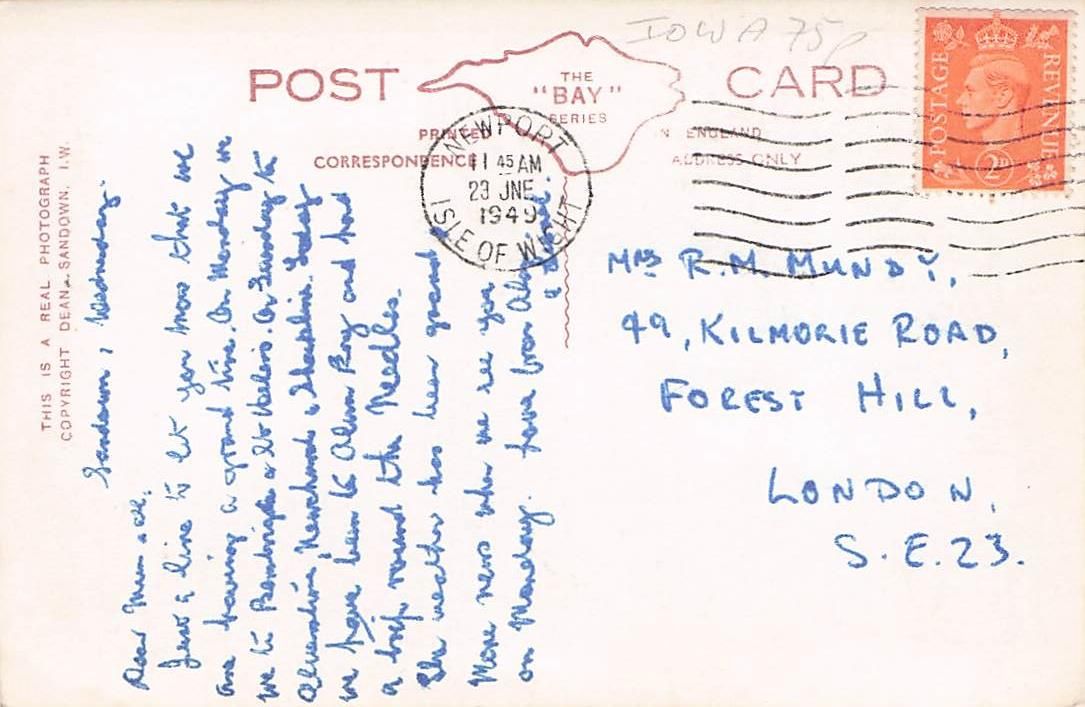 IOWA 75p
POST CARD
THE
"BAY"
SERIES
PRINTED IN ENGLAND
CORRESPONDENCE ADDRESS ONLY
NEWPORT
11 45 AM
29 JNE
1949
ISLE OF WIGHT
POSTAGE REVENUE
2D
THIS IS A REAL PHOTOGRAPH
COPYRIGHT DEAN, SANDOWN, I.W.
Sandown, Wednesday.
Dear Mum & all,
Just a line to let you know that we
are having a grand time. On Monday we
we to Bembridge & St Helens. On Tuesday to
Alverstone, Newchurch & Shanklin. Today
we have been to Alum Bay and had
a trip round the Needles.
The weather has been grand
More news when we see you
on Monday. Love from
MRS R.M. MUNDY,
49, KILMORIE ROAD,
FOREST HILL,
LONDON,
S.E.23.